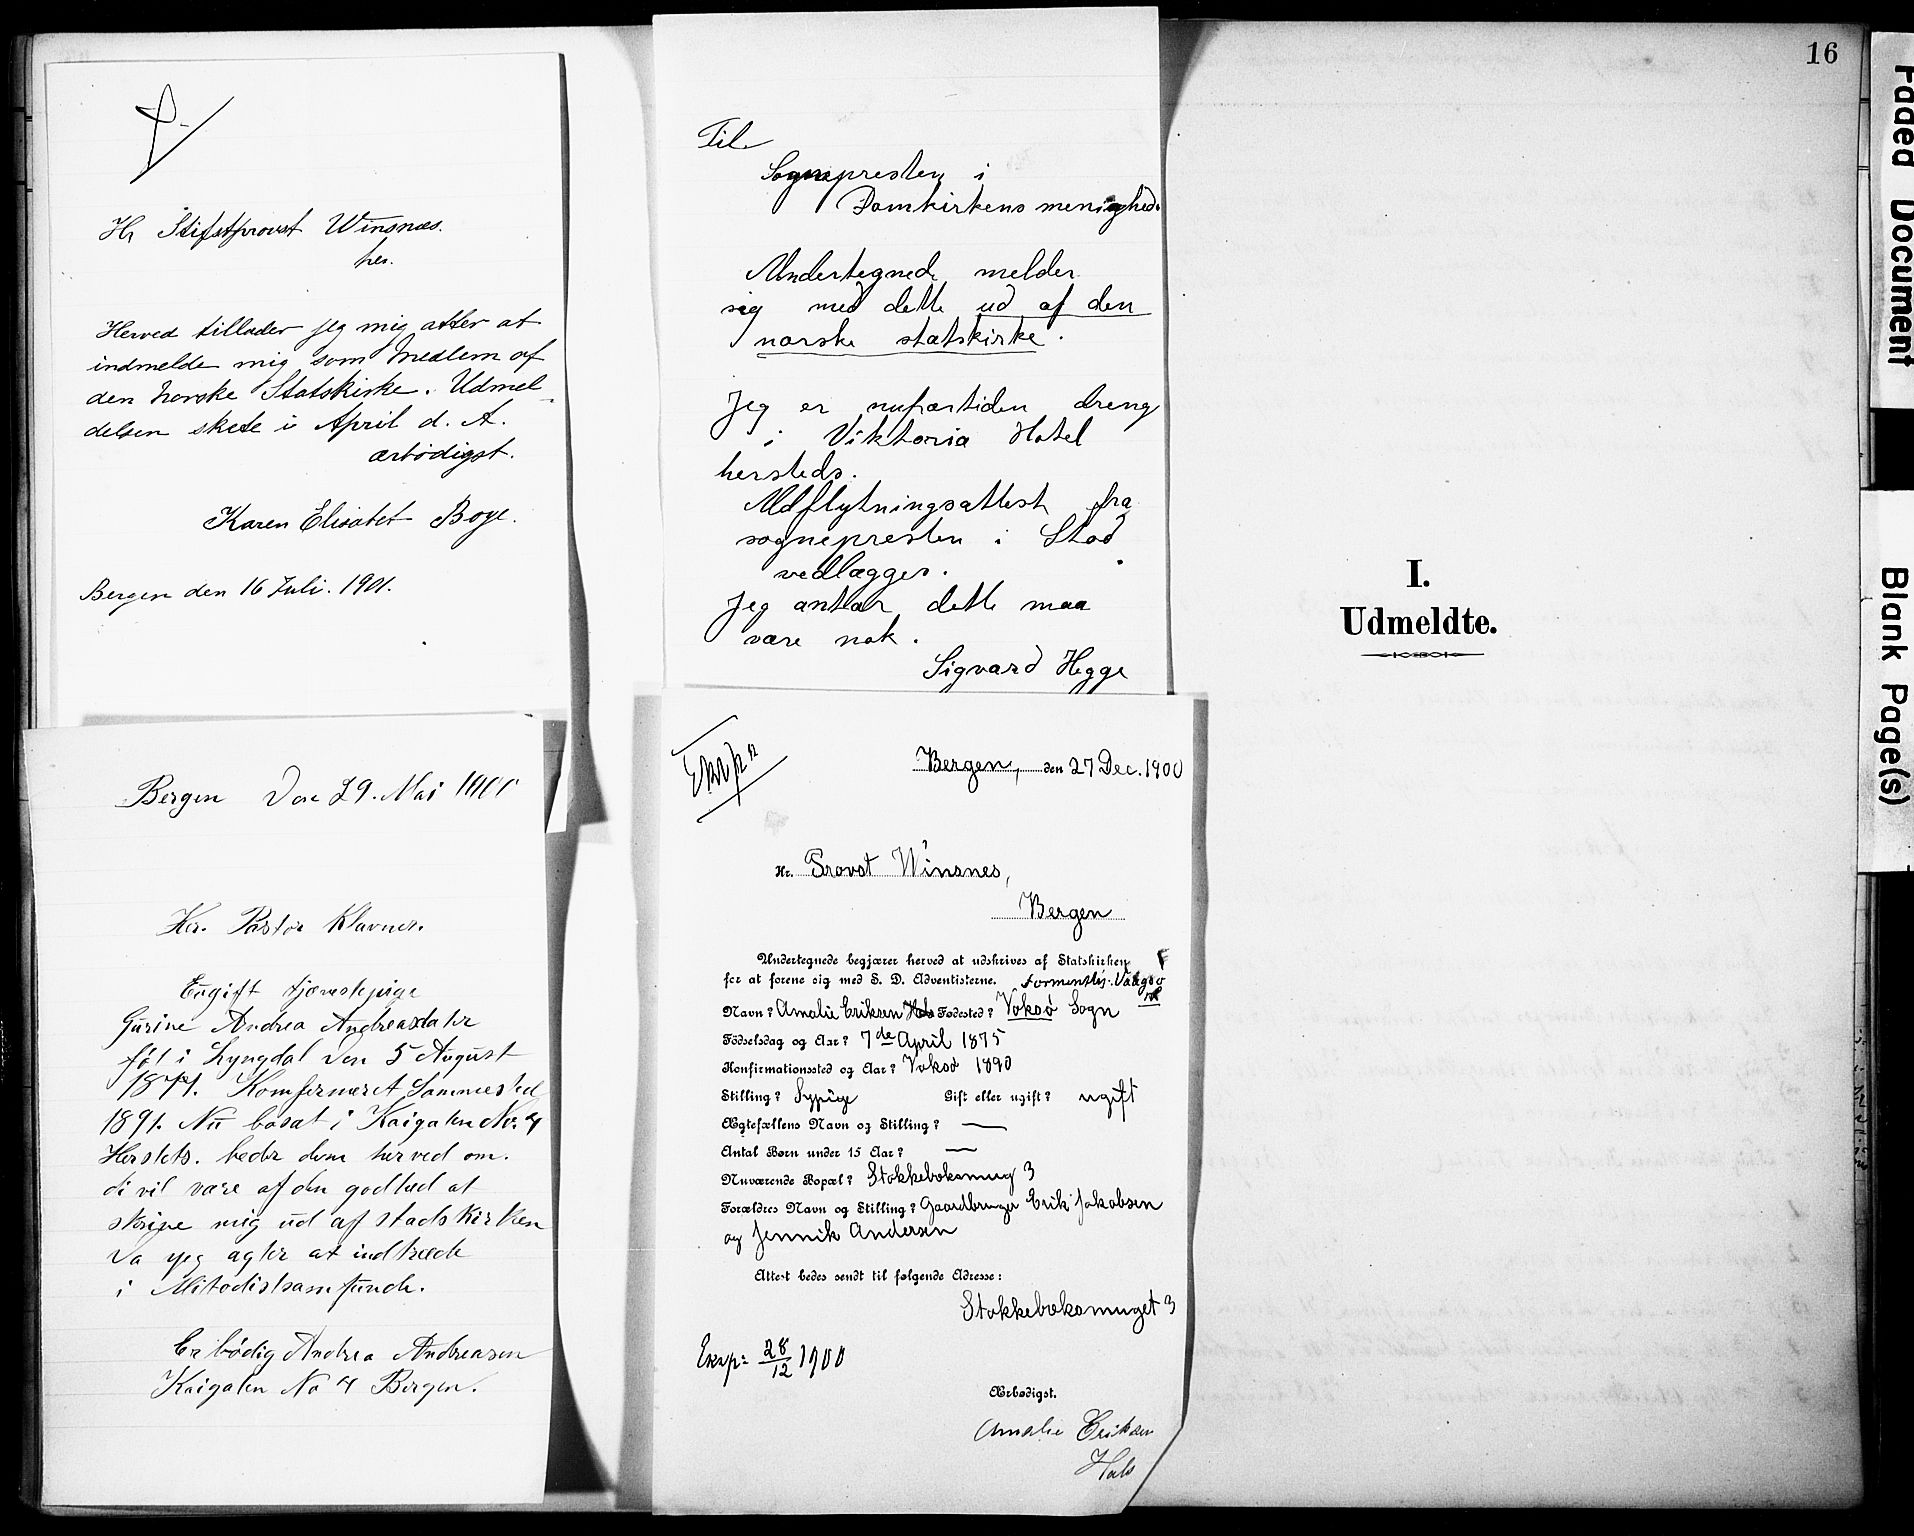 Hr Stiftsprovst Winsnes.
her.
Herved tillader jeg mig atter at
indmelde mig som Medlem af
den norske Statskirke. Udmel-
delsen skete i April d. A.
ærbødigst.
Karen Elisabet Boge.
Bergen den 16 Juli. 1901.
Bergen Den 29. Mai
Hr. Pastor Klavnes.
Eugift tjænestepige
Gurine Andrea Andreasdater
føt i Lyngdal den 5 August
1877. Komfermeret Sammested
1891. Nu bosat i Kaigaten No. 4
Herstets. beder dem herved om.
di vil være af den godhed at
skrive mig ud af stadskirken
Da yeg agter at indtræde
i Mitodistsamfunde.
Erbødig Andrea Andreasen
Kaigaten No 4 Bergen.
Til
Sognepresten i
Domkirkens menighed.
Undertegnede melder
sig med dette ud af den
norske statskirke.
Jeg er nufortiden dreng
i Viktoria Hotel
hersteds.
Udflytningsattest fra
sognepresten i Stod
vedlægges.
Jeg antar dette maa
være nok.
Sigvard Hegge
Exp.
Bergen, den 27 Dec. 1900
Hr. Provst Winsnes,
Bergen
Undertegnede begjærer herved at udskrives af Statskirken
for at forene sig med S. D. Adventisterne. formentlig Vaagsø
Navn? Amalie Eriksen Hals Fødested? Voksø Sogn
Fødselsdag og Aar? 7de April 1875
Konfirmationssted og Aar? Voksø 1890
Stilling? Sypige Gift eller ugift? ugift
Ægtefællens Navn og Stilling? —
Antal Børn under 15 Aar? —
Nuværende Bopæl? Stokkebæksmug 3
Forældres Navn og Stilling? Gaardbruger Erik Jakobsen
og Jennik Andersen
Attest bedes sendt til følgende Adresse:
Stokkebæksmuget 3
Exp: 28/12 1900
Ærbødigst.
Amalie Eriksen
Hals
16
I.
Udmeldte.
Faded Document
Blank Page(s)